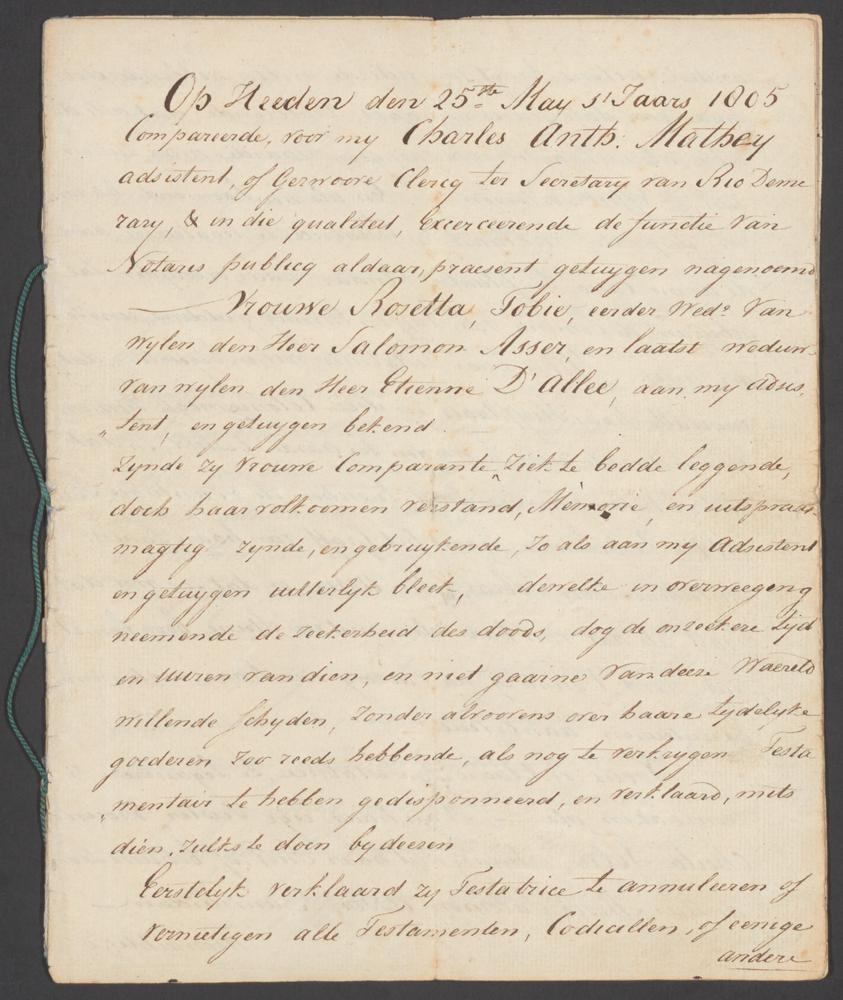 Op Heeden den 25ste May s'Jaars 1805
Compareerde, voor my Charles Anth: Mathey
adsistent, of Gezwoore Clercq ter Secretary van Rio Deme
rary, & in die qualiteit, Excerceerende de functie van
Notaris publicq aldaar, praesent getuygen nagenoemd
Vrouwe Rosetta Tobie, eerder Wede. van
wylen den Heer Salomon Asser, en laatst weduw.
van wylen den Heer Etienne D'allee, aan my adsis,
„tent, en getuygen bekend.
Zynde zy Vrouwe Comparante, Ziek te bedde leggende,
doch haar volkoomen verstand, Memorie, en uitspraak
magtig zynde, en gebruykende, Zo als aan my Adsistent
en getuygen uitterlyk bleek, dewelke in overweegeng
neemende de zeekerheid des doods, dog de onzeekere tyd
en uuren van dien, en niet gaarne van deeze Waereld
willende schyden, Zonder alvoorens over haare tydelyke
goederen zoo reeds hebbende, als nog te verkrygen Testa
„mentair te hebben gedisponneerd, en verklaard, mits
dien, zulks te doen by deesen
Eerstelyk verklaard zy Testatrice te annuleeren of
vernietigen alle Testamenten, Codicillen, of eenige
andere